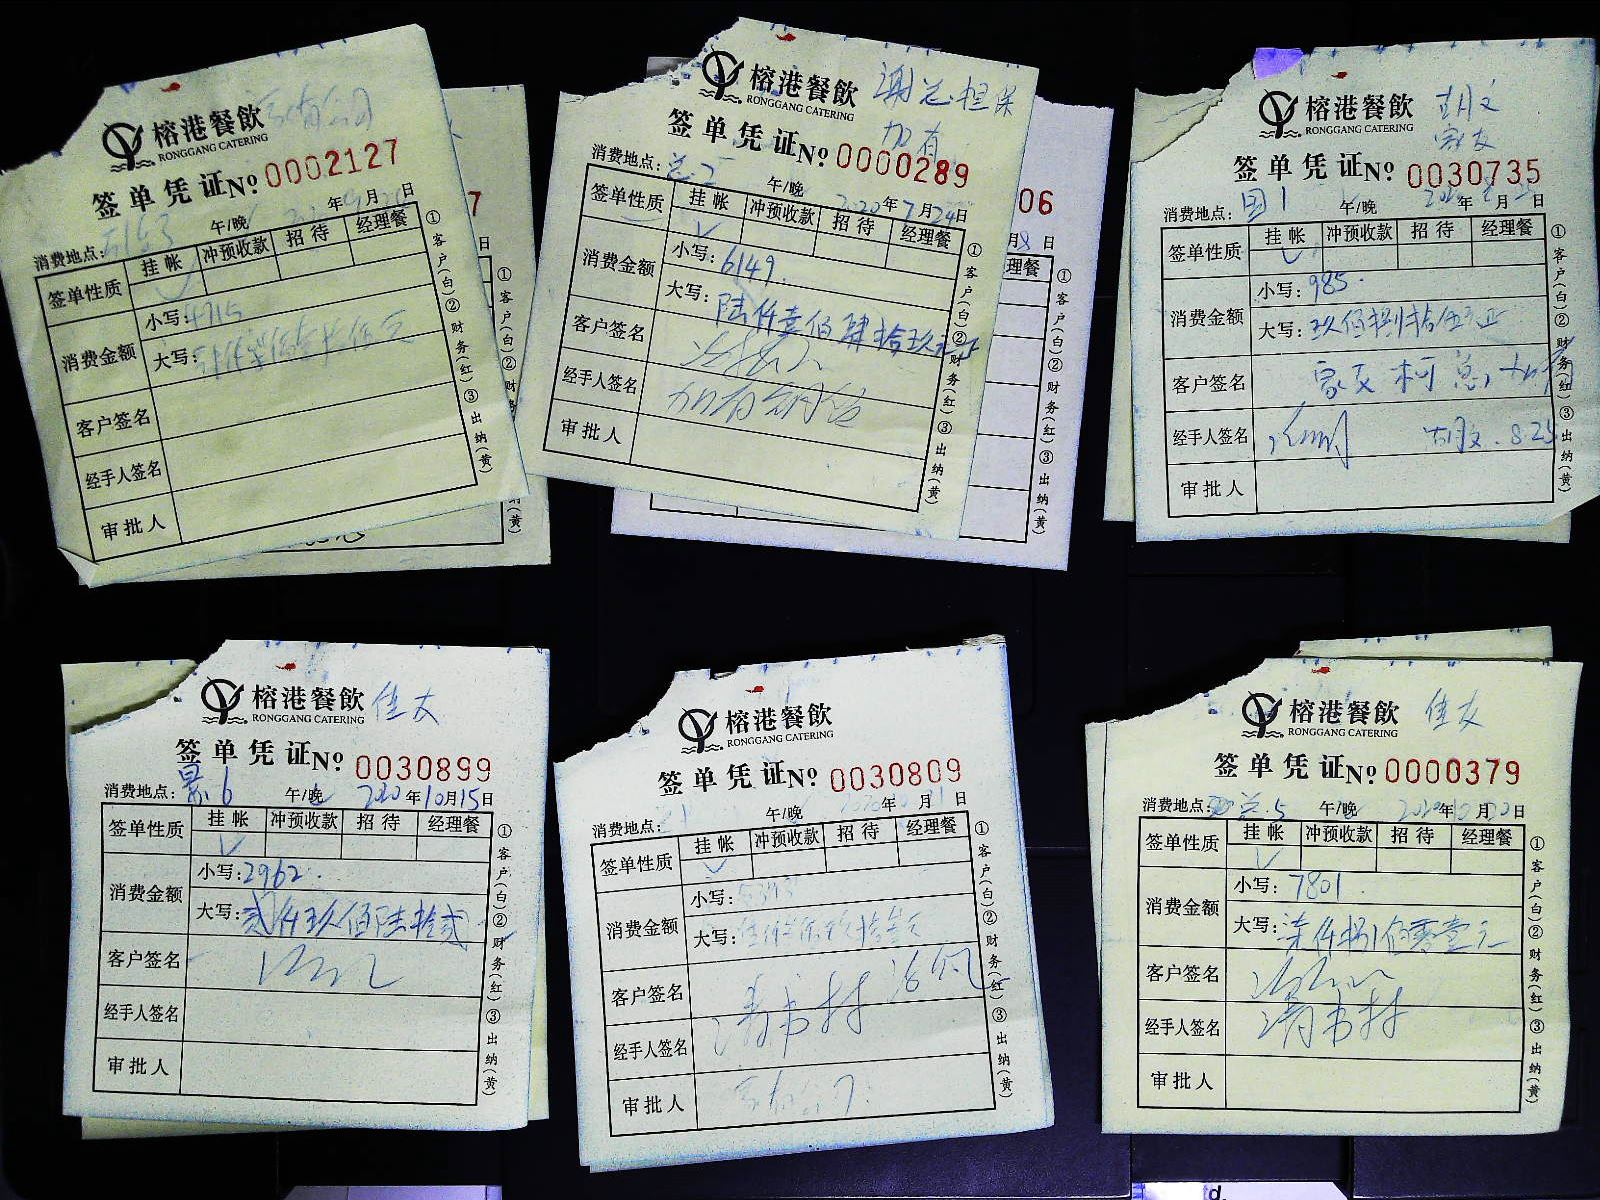 榕港餐飲
RONGGANG CATERING
签单凭证No 0002127
消费地点: 午/晚 年 月 日
签单性质 挂帐 冲预收款 招待 经理餐
消费金额 小写: 4715
大写:
客户签名
经手人签名
审批人
①客户(白)②财务(红)③出纳(黄)
7
日
①客户(白)②财务(红)③出纳(黄)
榕港餐飲 谢总担保
RONGGANG CATERING 加有
签单凭证No 0000289
消费地点: 总2 午/晚 2020年7月24日
签单性质 挂帐 冲预收款 招待 经理餐
消费金额 小写: 6149.
大写: 陆仟壹佰肆拾玖元正
客户签名
经手人签名
审批人
①客户(白)②财务(红)③出纳(黄)
06
月8日
理餐
①客户(白)②财务(红)③出纳(黄)
榕港餐飲
RONGGANG CATERING 家友
签单凭证No 0030735
消费地点: 国1 午/晚 年 月 日
签单性质 挂帐 冲预收款 招待 经理餐
消费金额 小写: 985.
大写: 玖佰捌拾伍元正
客户签名 家友 柯总
经手人签名 8.25
审批人
①客户(白)②财务(红)③出纳(黄)
榕港餐飲 佳友
RONGGANG CATERING
签单凭证No 0030899
消费地点: 景6 午/晚 2020年10月15日
签单性质 挂帐 冲预收款 招待 经理餐
消费金额 小写: 2962.
大写: 贰仟玖佰陆拾贰
客户签名
经手人签名
审批人
①客户(白)②财务(红)③出纳(黄)
榕港餐飲
RONGGANG CATERING
签单凭证No 0030809
消费地点: 午/晚 年 月 日
签单性质 挂帐 冲预收款 招待 经理餐
消费金额 小写: 5393
大写:
客户签名
经手人签名
审批人
①客户(白)②财务(红)③出纳(黄)
榕港餐飲 佳友
RONGGANG CATERING
签单凭证No 0000379
消费地点: 午/晚 2020年 月 日
签单性质 挂帐 冲预收款 招待 经理餐
消费金额 小写: 7801.
大写: 柒仟捌佰零壹元
客户签名
经手人签名
审批人
①客户(白)②财务(红)③出纳(黄)
td.